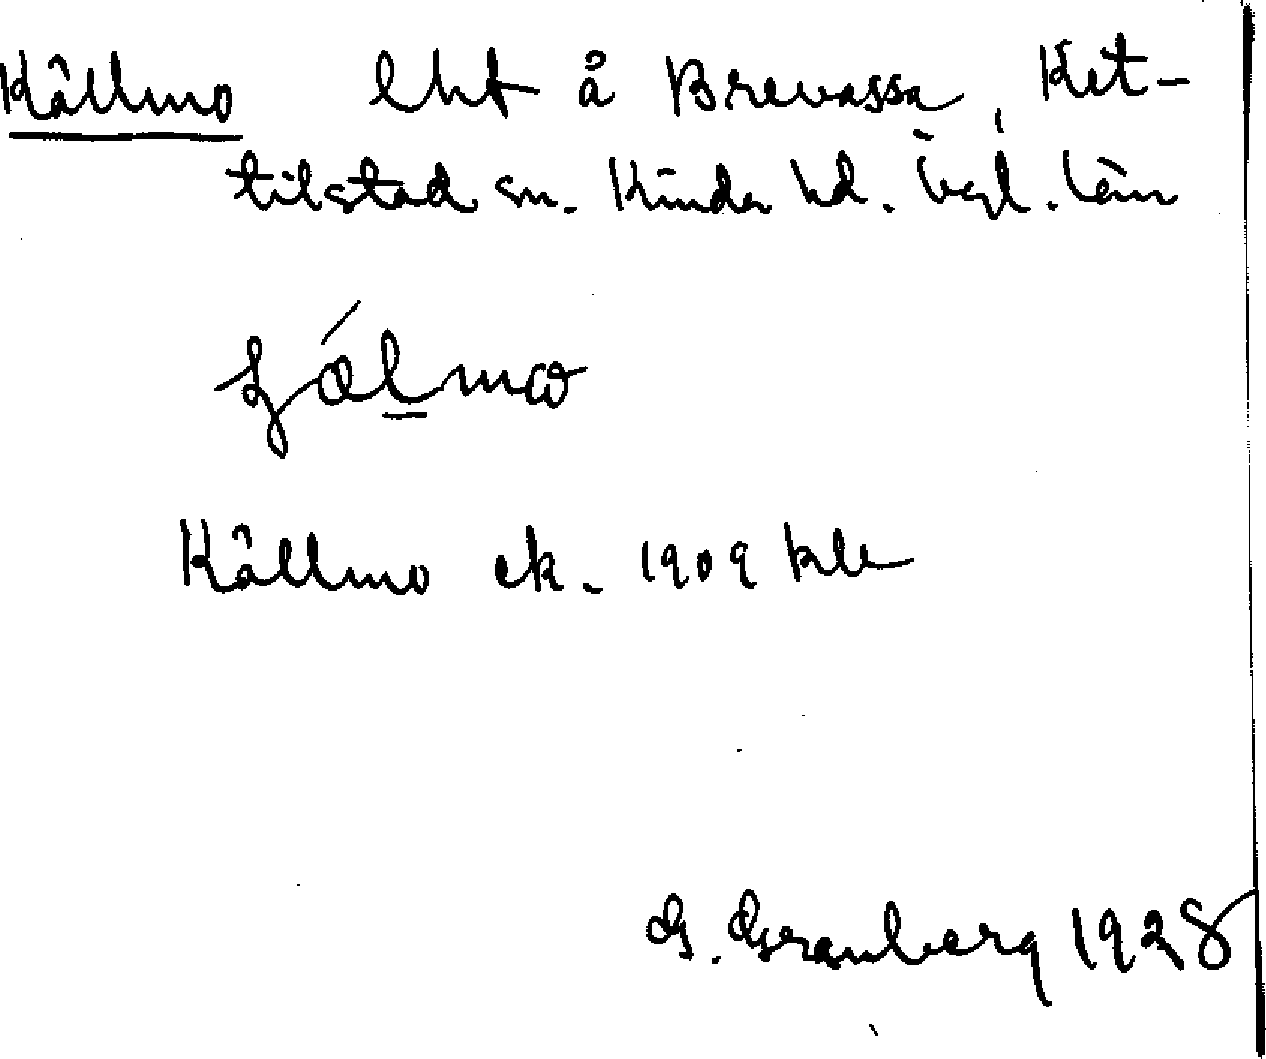 Källmo lht å Brevassa, Ket-
tilstad sn. Kinda hd. Ögl. län
Källmo ek. 1909 kbr
G. Granberg 1928